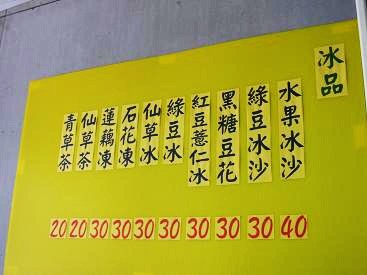 冰品
水果冰沙
綠豆冰沙
黑糖豆花
紅豆薏仁冰
綠豆冰
仙草冰
石花凍
蓮藕凍
仙草茶
青草茶
20 20 30 30 30 30 30 30 30 40